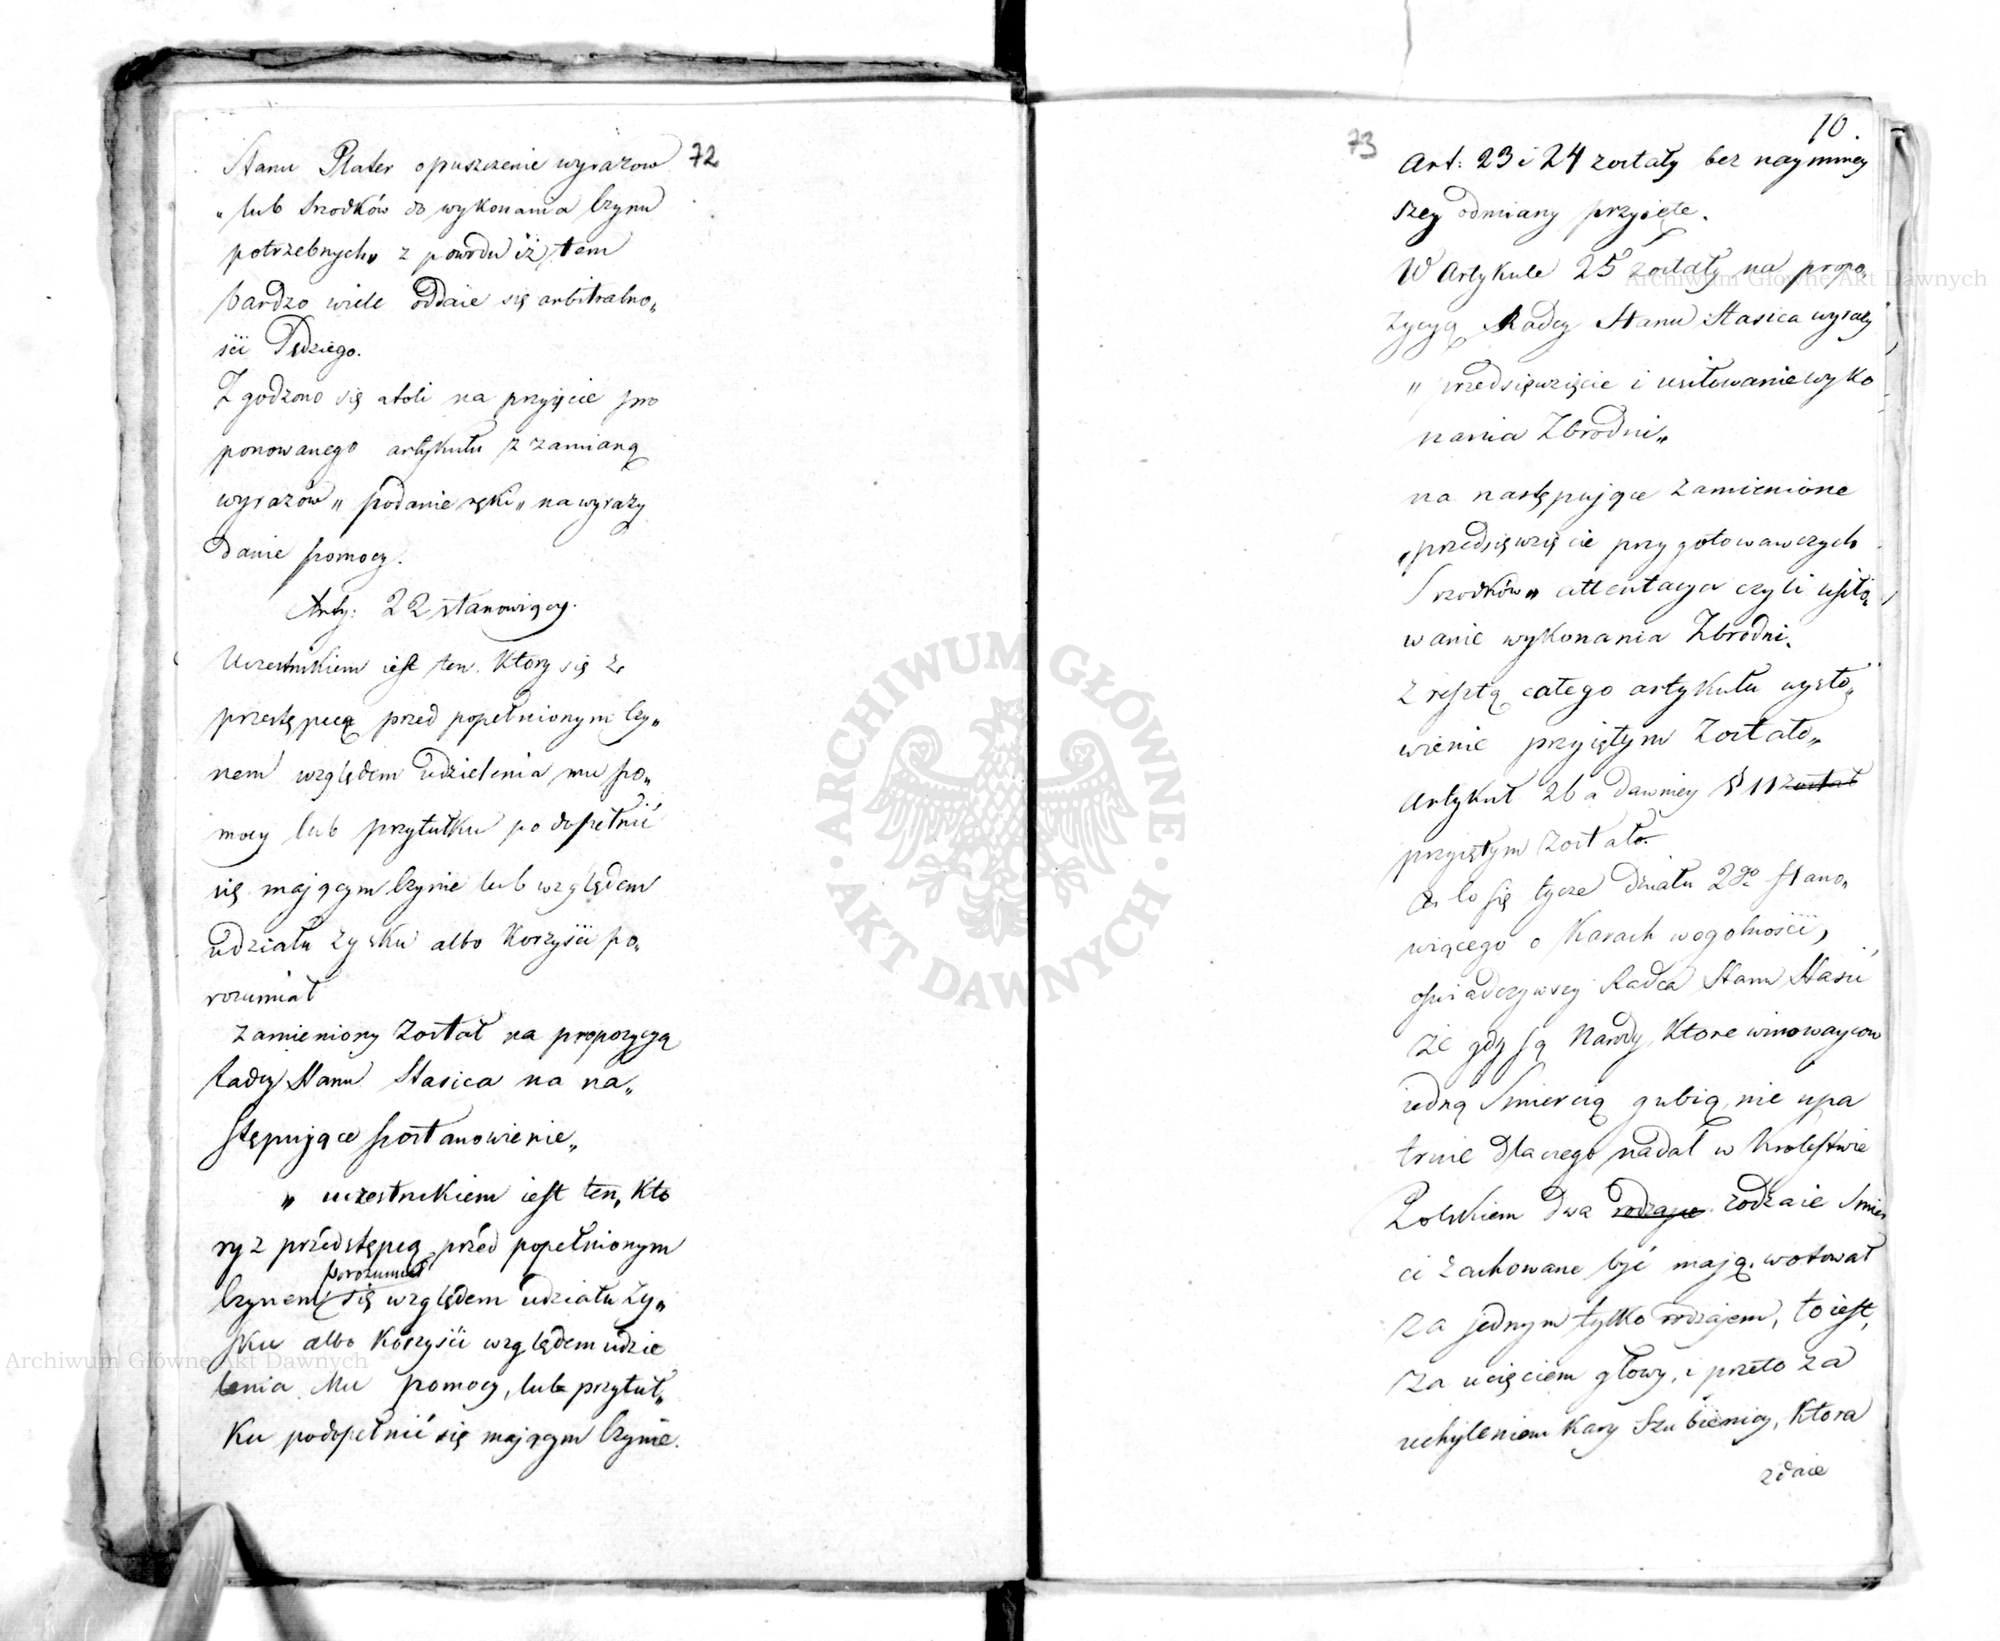 72
Stanu Plater opuszczenie wyrazow
„ lub Srodków do wykonania Czynu
potrzebnych„ z powodu iż tem
bardzo wiele oddaie się arbitralno„
ści Sędziego.
Zgodzono się atoli na przyięcie pro
ponowanego artykułu z zamianą
wyrazów „ podanie ręki „ na wyrazy
danie pomocy.
Arty: 22 stanowiący.
Uczestnikiem iest ten. Ktory się z
przestępcą przed popełnionym Czy„
nem względem udzielenia mu po„
mocy lub przytułku po dopełnić
się maiącym Czynie lub względem
udziału zysku albo Korzyści po„
rozumiał
zamieniony został na propozycyą
Radcy Stanu Stasica na na„
stępujące postanowienie„
„ uczestnikiem iest ten, Kto
ry z przéstępcą przéd popełnionym
porozumiał
Czynem się względem udziału Zy„
sku albo Korzyści względem udzie
lenia Mu pomocy, lub przytuł„
Ku podopełnić się mającym Czynie.
73
10.
Art: 23 i 24 zostały bez naymniey
szey odmiany przyięte.
W Artykule 25 zostały na propo„
zycyą Radcy Stanu Stasica wyrazy
„ przedsięwzięcie i usiłowanie wyko
nania Zbrodni„
na następujące zamienione
„przedsięwzięcie przygotowawczych
Srodków„ attentacya czyli usiło„
wanie wykonania Zbrodni.
z resztą całego artykułu wysło„
wienie przyiętym Zostało„
Artykuł 26 a dawniey § 11 został
przyiętym został.
Co się tycze Działu 2go stano„
wiącego o Karach wogolności,
oświadczywszy Radca Stanu Stasic
że gdy są Narody, Ktore winowaycow
iedną Smiercią gubią, nie upa
truie dlaczego nadal w Krolestwie
Polskiem dwa rodzaje rodzaie Smier
ci zachowane być mają, wotował
za jednym tylko rodzajem, to iest,
za ucięciem głowy, i przeto za
uchyleniem Kary Szubienicy, Ktora
zdaie
ARCHIWUM GŁÓWNE · AKT DAWNYCH ·
Archiwum Główne Akt Dawnych
Archiwum Główne Akt Dawnych